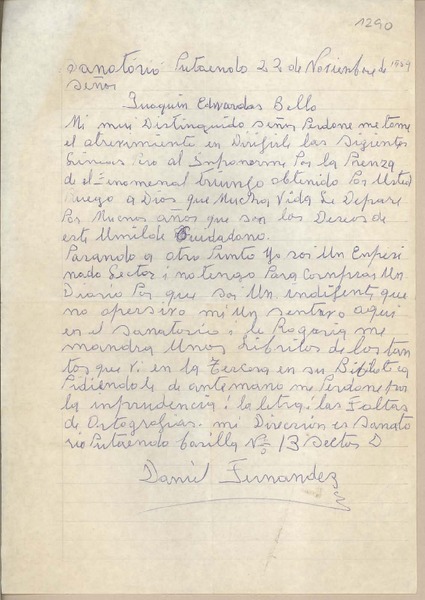 1290
Sanatorio Putaendo 22 de Noviembre de 1959
Señor
Juaquin Edwardas Bello
Mi mui Distinguido señor Perdone me tome
el atrevimiento en Dirijirle las Sigientes
Lineas pero al Inponerme Por la Prenza
de el Fenomenal triunfo obtenido Por Usted
ruego a Dios que Mucha Vida Le Depare
Por Muchos años que son los Deseos de
este Umilde Ciudadano.
Pasando a otro Punto Yo soi Un Enpesi
nado Lector i no tengo Para Comprar Un
Diario Por que soi Un indijente que
no apersivo mi Un sentavo aqui
en el sanatorio i le Rogaria me
mandra Unos Libritos de los tan
tos que vi en la Tercera en su Biblioteca
Pidiendole de antemano me Perdone por
la inprudencia i la letra i las Faltas
de Ortografias. mi Direccion es Sanato
rio Putaendo Casilla Nº 13 Sector D
Daniel Fernandez